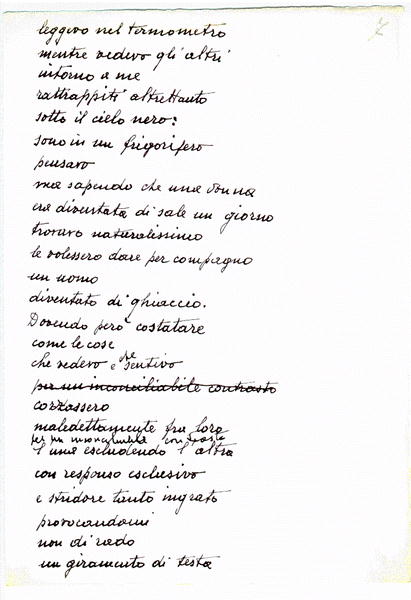 7
leggevo nel termometro
mentre vedevo gli altri
intorno a me
rattrappiti altrettanto
sotto il cielo nero:
sono in un frigorifero
pensavo
ma sapendo che una donna
era diventata di sale un giorno
trovavo naturalissimo
le volessero dare per compagno
un uomo
diventato di ghiaccio.
Dovendo però costatare
come le cose
che vedevo e che sentivo
per un inconciliabile contrasto
cozzassero
maledettamente fra loro
per un inconciliabile contrasto
l'una escludendo l'altra
con responso esclusivo
e stridore tanto ingrato
provocandomi
non di rado
un giramento di testa